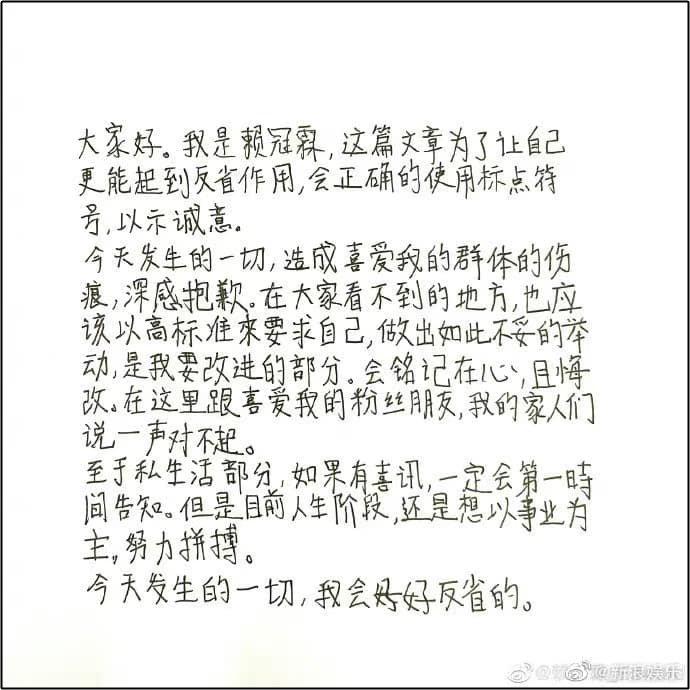 大家好。我是赖冠霖,这篇文章为了让自己
更能起到反省作用,会正确的使用标点符
号,以示诚意。
今天发生的一切,造成喜爱我的群体的伤
痕,深感抱歉。在大家看不到的地方,也应
该以高标准來要求自己,做出如此不妥的举
动,是我要改进的部分。会铭记在心,且悔
改。在这里跟喜爱我的粉丝朋友,我的家人们
说一声对不起。
至于私生活部分,如果有喜讯,一定会第一時
间告知。但是目前人生阶段,还是想以事业为
主,努力拼搏。
今天发生的一切,我会好好反省的。
@新浪娱乐